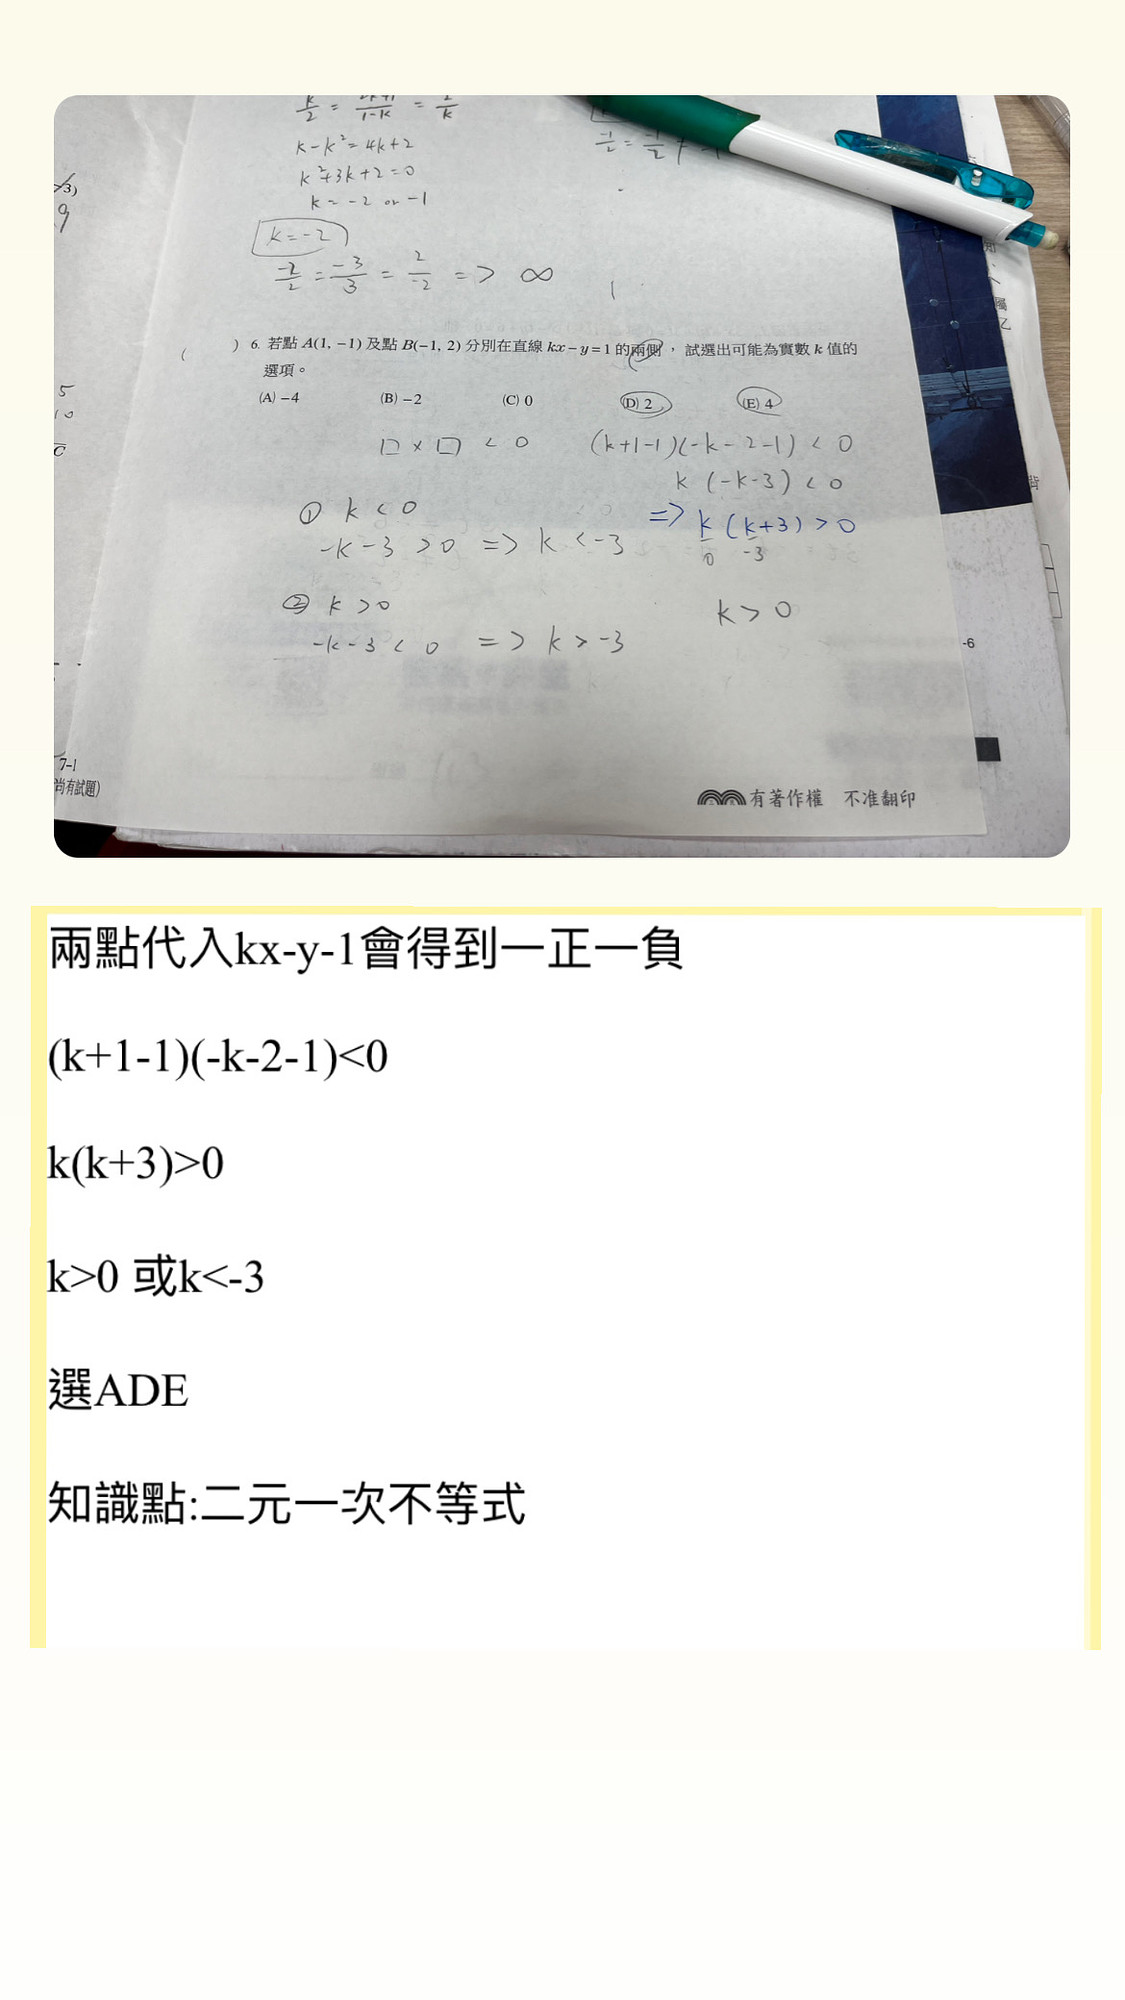 K-K²=4K+2
K²+3K+2=0
K=-2 or -1
K=-2
-2/2=-3/3=2/-2 => ∞
-3)
9
( ) 6. 若點 A(1, −1) 及點 B(−1, 2) 分別在直線 kx−y=1 的兩側, 試選出可能為實數 k 值的
選項。
(A) −4 (B) −2 (C) 0 (D) 2 (E) 4
5
10
C
□ × □ < 0 (k+1-1)(-k-2-1) < 0
k (-k-3) < 0
① k < 0 => k (k+3) > 0
0 -3
-k-3 > 0 => k < -3
② k > 0 k > 0
-k-3 < 0 => k > -3
-6
7-1
尚有試題)
有著作權 不准翻印
兩點代入kx-y-1會得到一正一負
(k+1-1)(-k-2-1)<0
k(k+3)>0
k>0 或k<-3
選ADE
知識點:二元一次不等式